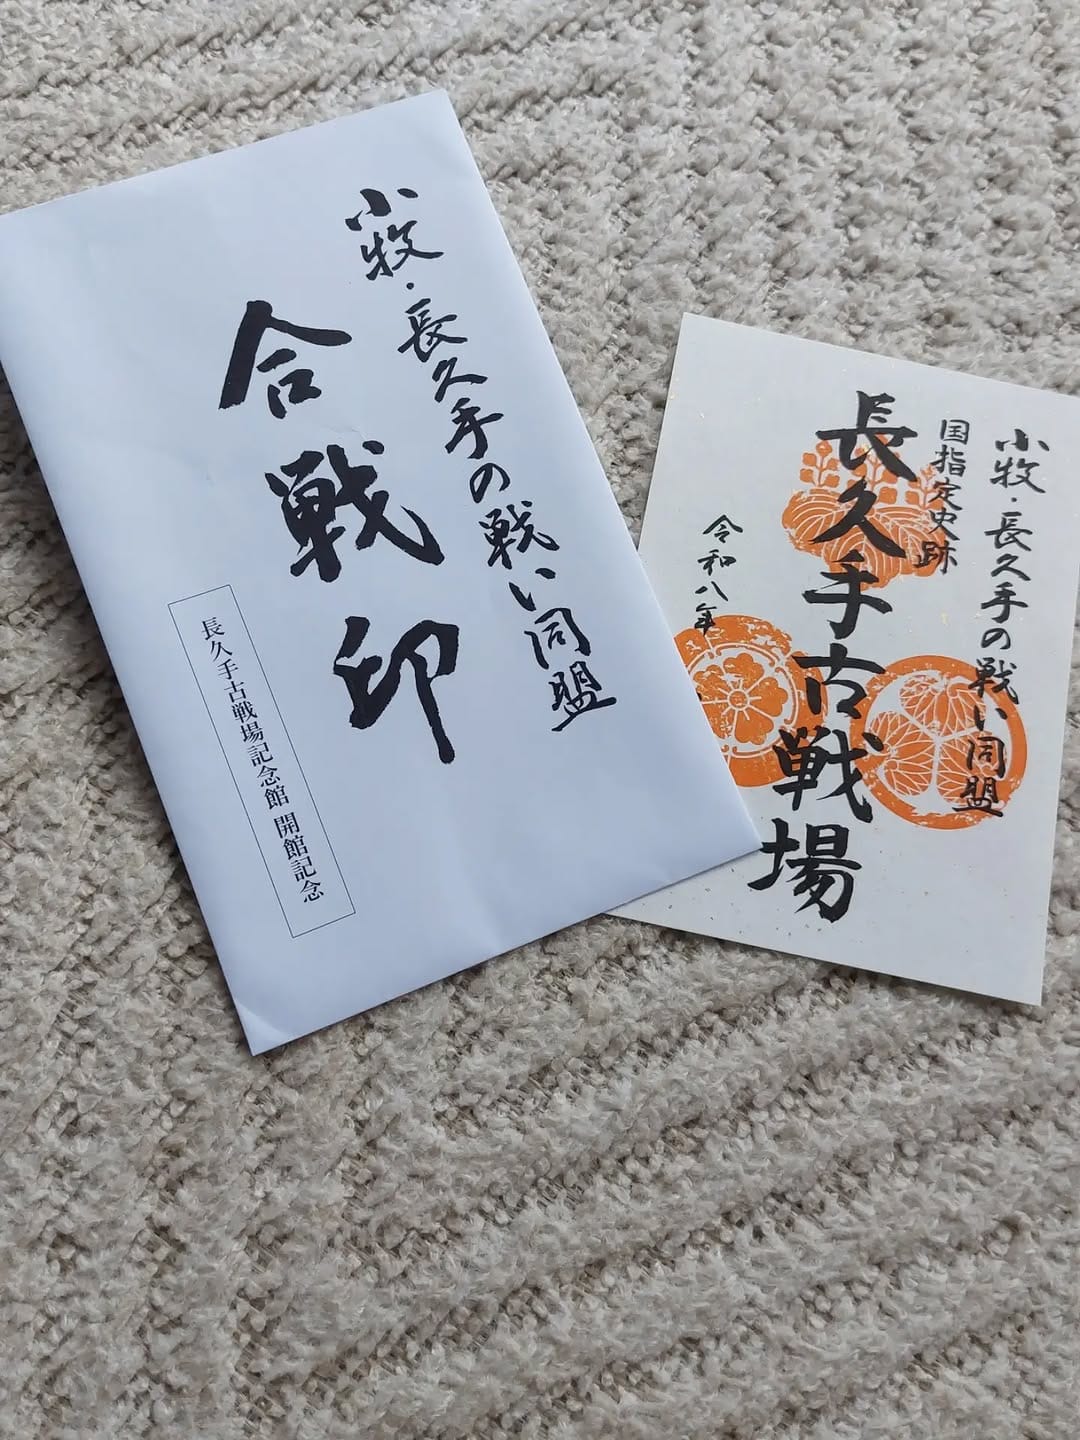 小牧・長久手の戦い同盟
合戦印
長久手古戦場記念館 開館記念
小牧・長久手の戦い同盟
国指定史跡
長久手古戦場
令和八年